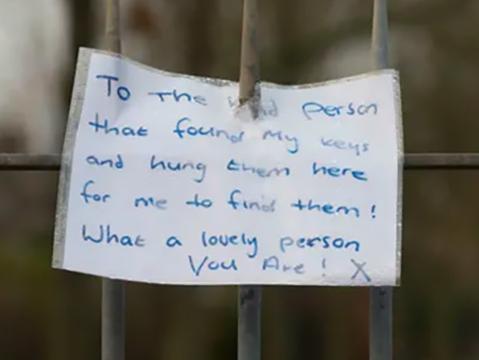 To The kind person
that found my keys
and hung them here
for me to find them!
What a lovely person
You Are! X